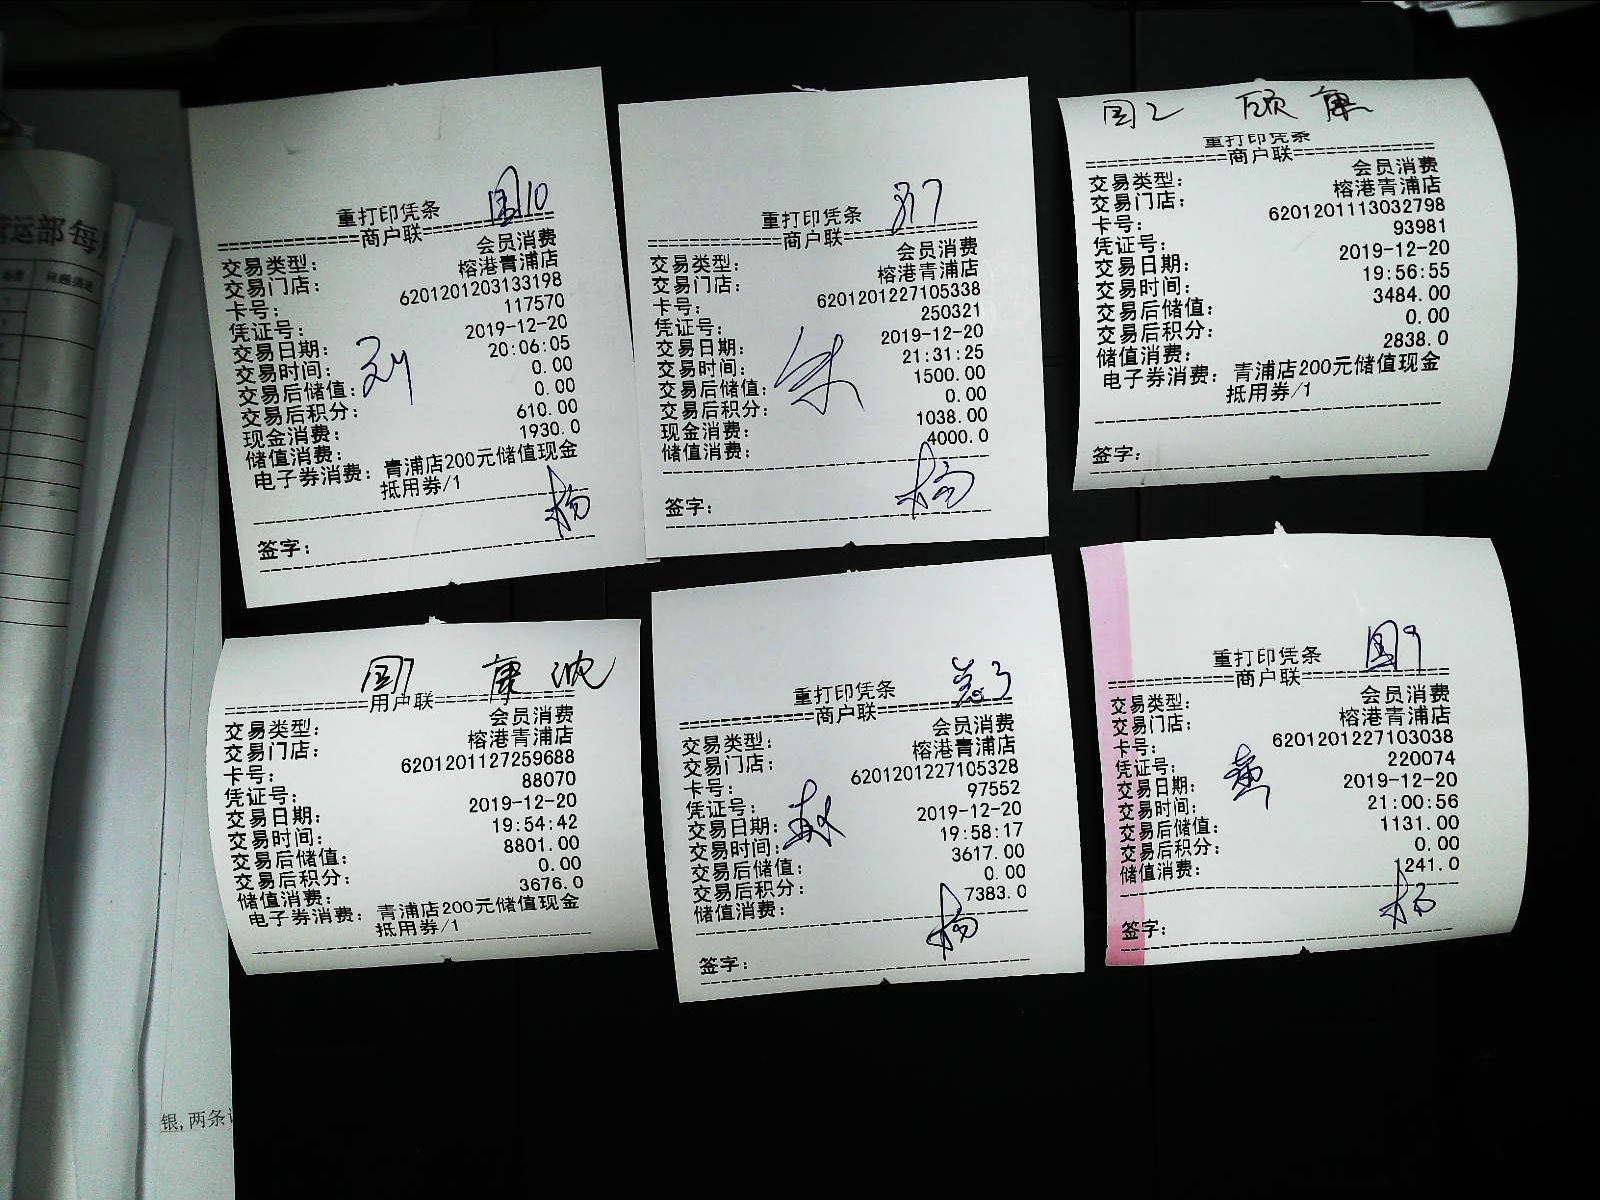 国10
重打印凭条
==============商户联==============
交易类型: 会员消费
交易门店: 榕港青浦店
卡号: 6201201203133198
凭证号: 117570
交易日期: 2019-12-20
交易时间: 20:06:05
交易后储值: 0.00
交易后积分: 0.00
现金消费: 610.00
储值消费: 1930.0
电子券消费: 青浦店200元储值现金
抵用券/1
刘
杨
签字:
817
重打印凭条
==============商户联==============
交易类型: 会员消费
交易门店: 榕港青浦店
卡号: 6201201227105338
凭证号: 250321
交易日期: 2019-12-20
交易时间: 21:31:25
交易后储值: 1500.00
交易后积分: 0.00
现金消费: 1038.00
储值消费: 4000.0
朱
杨
签字:
国2 顾 康
重打印凭条
==============商户联==============
交易类型: 会员消费
交易门店: 榕港青浦店
卡号: 6201201113032798
凭证号: 93981
交易日期: 2019-12-20
交易时间: 19:56:55
交易后储值: 3484.00
交易后积分: 0.00
储值消费: 2838.0
电子券消费: 青浦店200元储值现金
抵用券/1
签字:
国7 康 沈
==============用户联==============
交易类型: 会员消费
交易门店: 榕港青浦店
卡号: 6201201127259688
凭证号: 88070
交易日期: 2019-12-20
交易时间: 19:54:42
交易后储值: 8801.00
交易后积分: 0.00
储值消费: 3676.0
电子券消费: 青浦店200元储值现金
抵用券/1
重打印凭条
==============商户联==============
交易类型: 会员消费
交易门店: 榕港青浦店
卡号: 6201201227105328
凭证号: 97552
交易日期: 2019-12-20
交易时间: 19:58:17
交易后储值: 3617.00
交易后积分: 0.00
储值消费: 7383.0
杨
签字:
国9
重打印凭条
==============商户联==============
交易类型: 会员消费
交易门店: 榕港青浦店
卡号: 6201201227103038
凭证号: 220074
交易日期: 2019-12-20
交易时间: 21:00:56
交易后储值: 1131.00
交易后积分: 0.00
储值消费: 1241.0
黄
杨
签字:
营运部每
银,两条